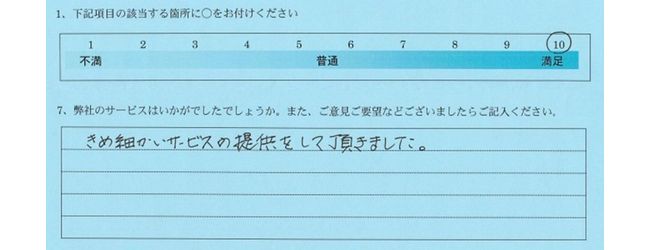 1、下記項目の該当する箇所に○をお付けください
1 2 3 4 5 6 7 8 9 10
不満 普通 満足
7、弊社のサービスはいかがでしたでしょうか。また、ご意見ご要望などございましたらご記入ください。
きめ細かいサービスの提供をして頂きました。